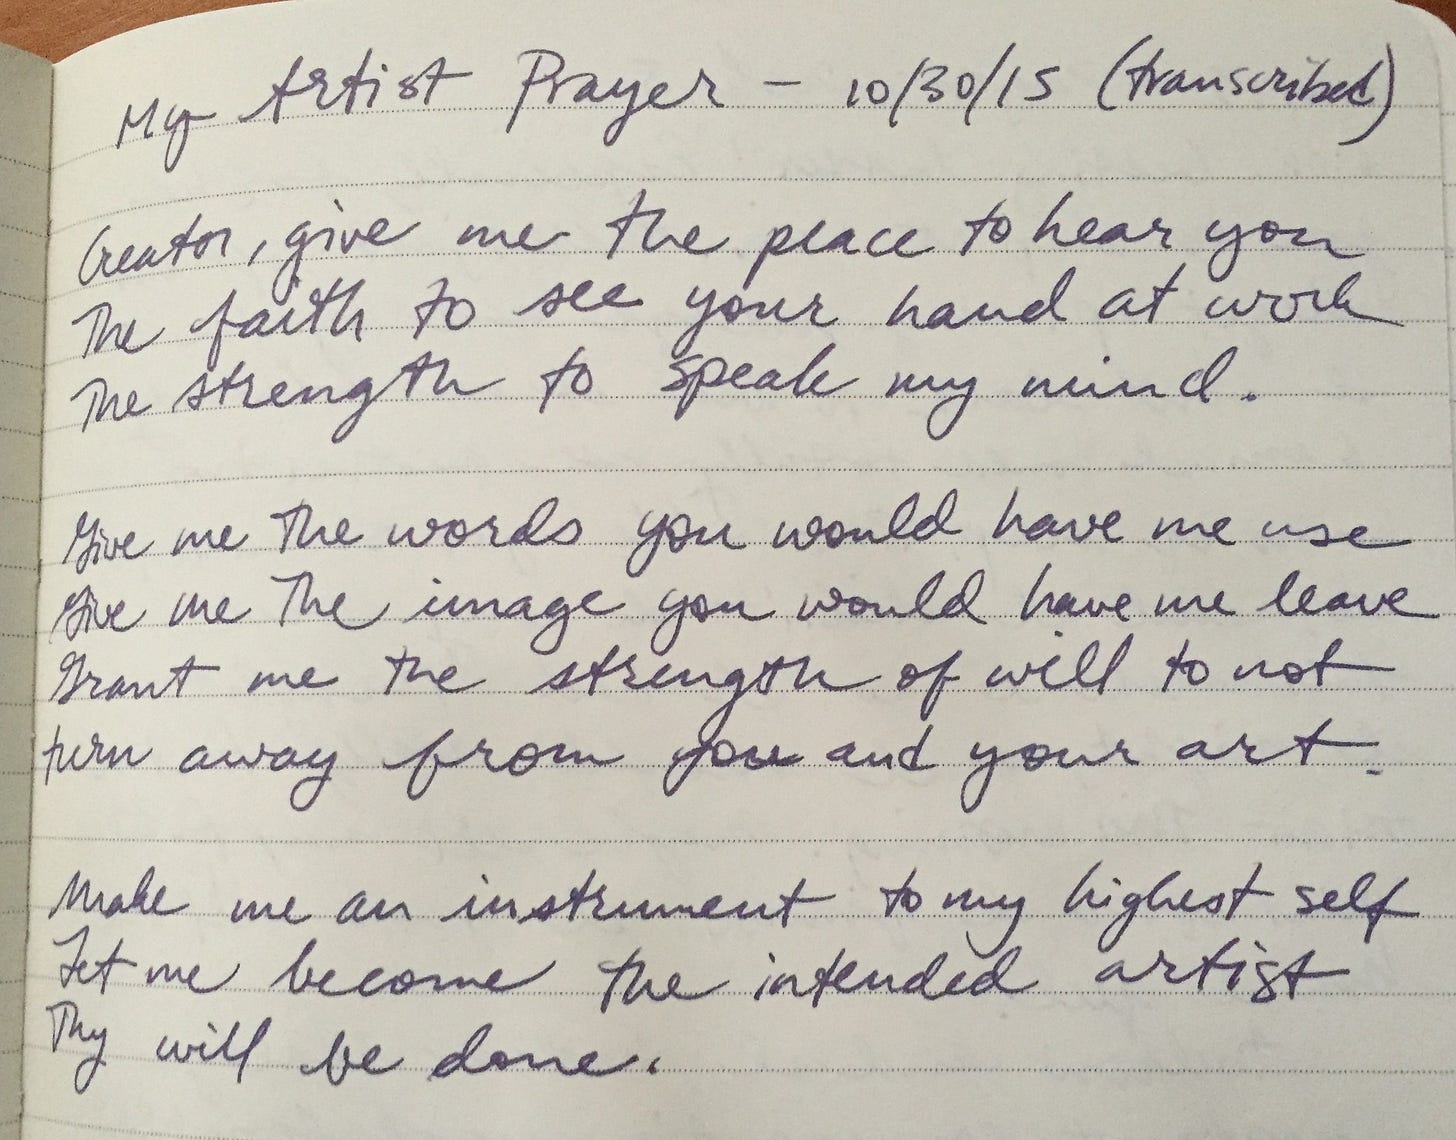 My Artist Prayer – 10/30/15 (transcribed)
Creator, give me the peace to hear you
The faith to see your hand at work
The strength to speak my mind.
Give me the words you would have me use
Give me the image you would have me leave
Grant me the strength of will to not
turn away from you and your art.
Make me an instrument to my highest self
Let me become the intended artist
Thy will be done.